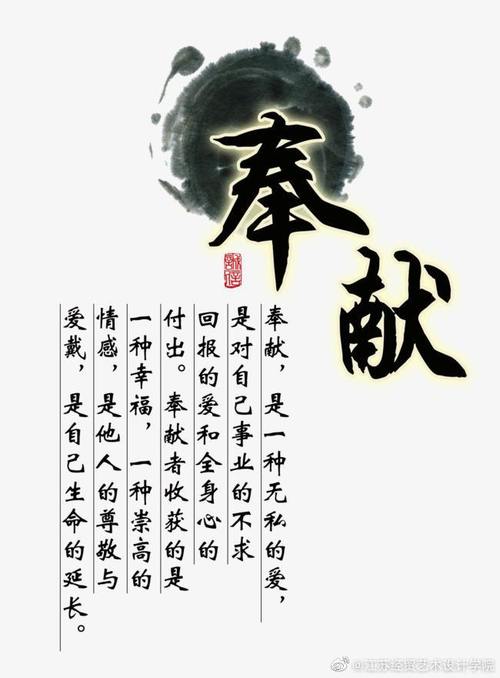 奉献
奉献，是一种无私的爱，
是对自己事业的不求
回报的爱和全身心的
付出。奉献者收获的是
一种幸福，一种崇高的
情感，是他人的尊敬与
爱戴，是自己生命的延长。
@江苏经贸艺术设计学院